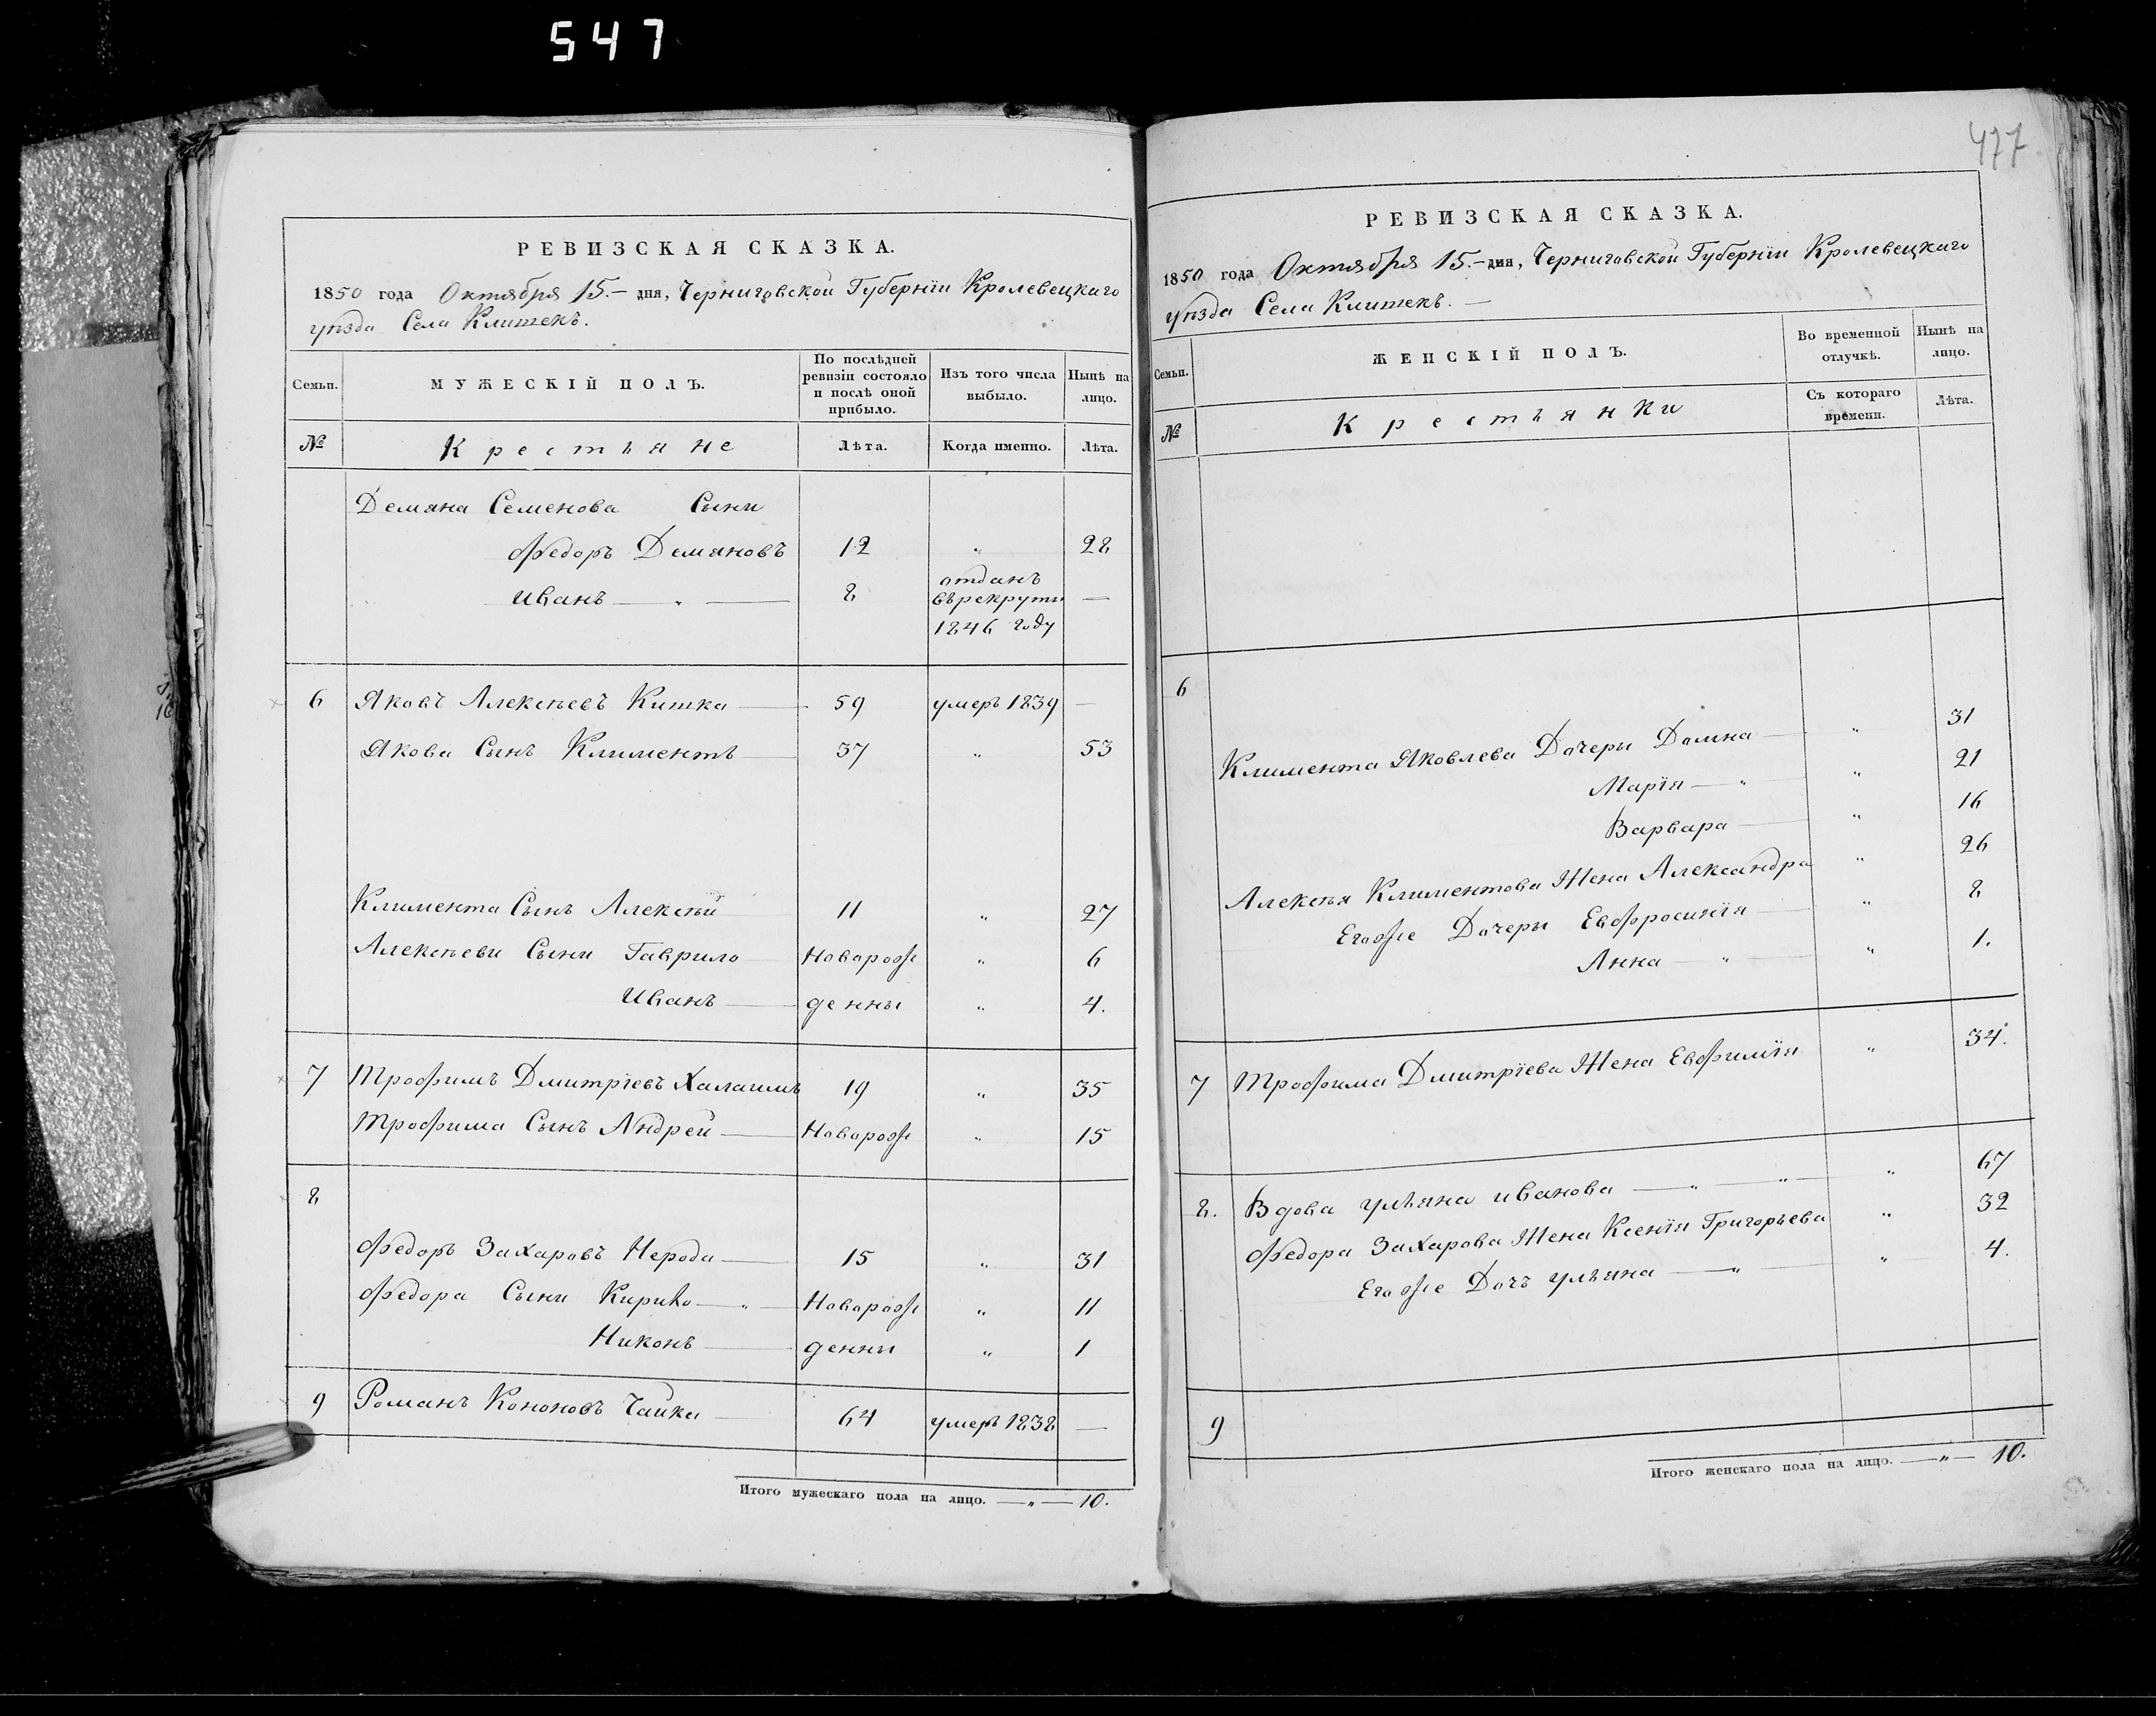 547
РЕВИЗСКАЯ СКАЗКА.
1850 года Октября 15.– дня, Черниговской Губернїи Кролевецкаго
уѣзда Села Клишекъ.
Семьи.
МУЖЕСКІЙ ПОЛЪ.
По послѣдней ревизіи состояло и послѣ оной прибыло.
Изъ того числа выбыло.
Нынѣ на лицо.
№
Крестьяне
Лѣта.
Когда именно.
Лѣта.
Демяна Семенова Сыни
Федоръ Демяновъ 12 „ 28
Иванъ — „ — 8 отданъ въ рекруты 1846 году —
6 Яковъ Алексѣевъ Кишка — 59 умеръ 1839 —
Якова Сынъ Климентъ — 37 „ 53
Климента Сынъ Алексѣй 11 „ 27
Алексѣеви Сыни Гаврило — Новорож „ 6
Иванъ — денны „ 4.
7 Трофимъ Дмитрїевъ 19 „ 35
Трофима Сынъ Андрей — Новорож „ 15
8
Федоръ Захаровъ Нерода — 15 „ 31
Федора Сыни Кирило — „ — Новорож „ 11
Никонъ — денны „ 1
9 Романъ Кононовъ Чайка — 64 умеръ 1838 —
Итого мужескаго пола на лицо. — „ — 10.
477
РЕВИЗСКАЯ СКАЗКА.
1850 года Октября 15.– дня, Черниговской Губернїи Кролевецкаго
уѣзда Села Клишекъ. —
Семьи.
ЖЕНСКІЙ ПОЛЪ.
Во временной отлучкѣ.
Нынѣ на лицо.
№
Крестьянки
Съ котораго времени.
Лѣта.
6
Климента Яковлева Дочери Домна — „ 31
Марїя — „ „ 21
Варвара — „ 16
Алексѣя Климентова Жена Александра „ 26
Егоже Дочери Евфросинїя — „ 8
Анна — „ — „ 1.
7 Трофима Дмитрїева Жена Евфимїя „ 34.
8. Вдова Ульяна Иванова — „ — „ — „ 67
Федора Захарова Жена Ксенїя Григорьева „ 32
Егоже Дочъ Ульяна — „ — „ 4.
9
Итого женскаго пола на лицо. — „ — 10.